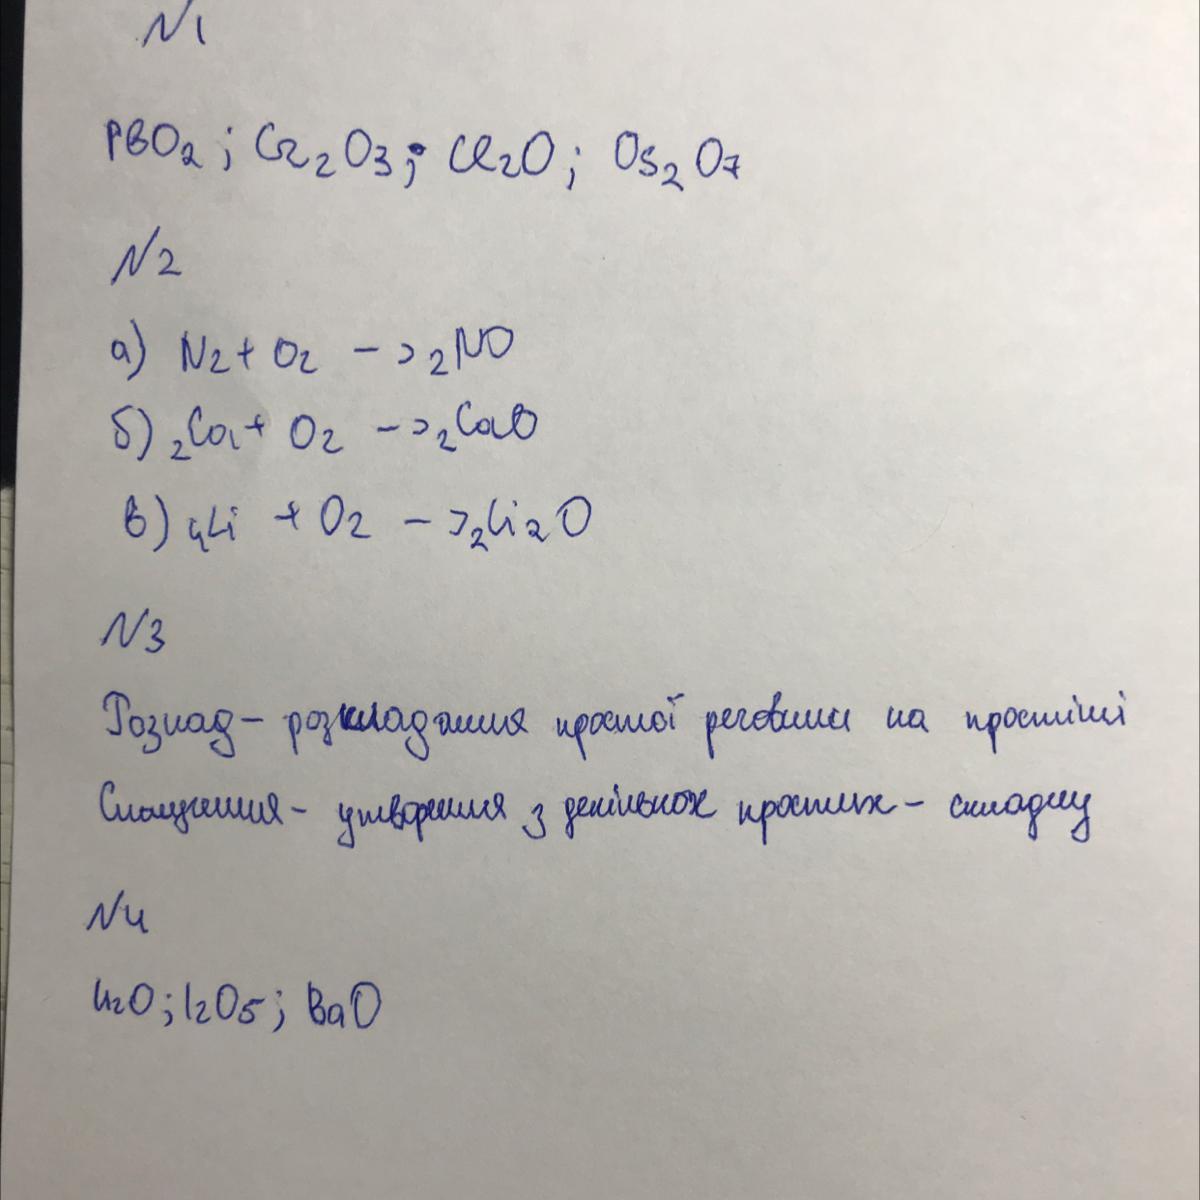 N1
PBO2; Cr2O3; Cl2O; Os2O7
N2
а) N2 + O2 -> 2NO
б) 2Ca + O2 -> 2CaO
в) 4Li + O2 -> 2Li2O
N3
Розпад - розкладання простої речовини на простіші
Сполучення - утворення з декількох простих - складну
N4
H2O; I2O5; BaO